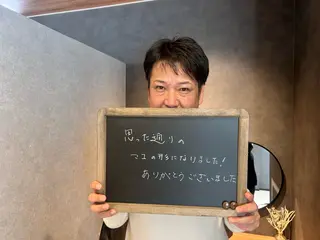 思った通りの
マユの形になりました!
ありがとうございました